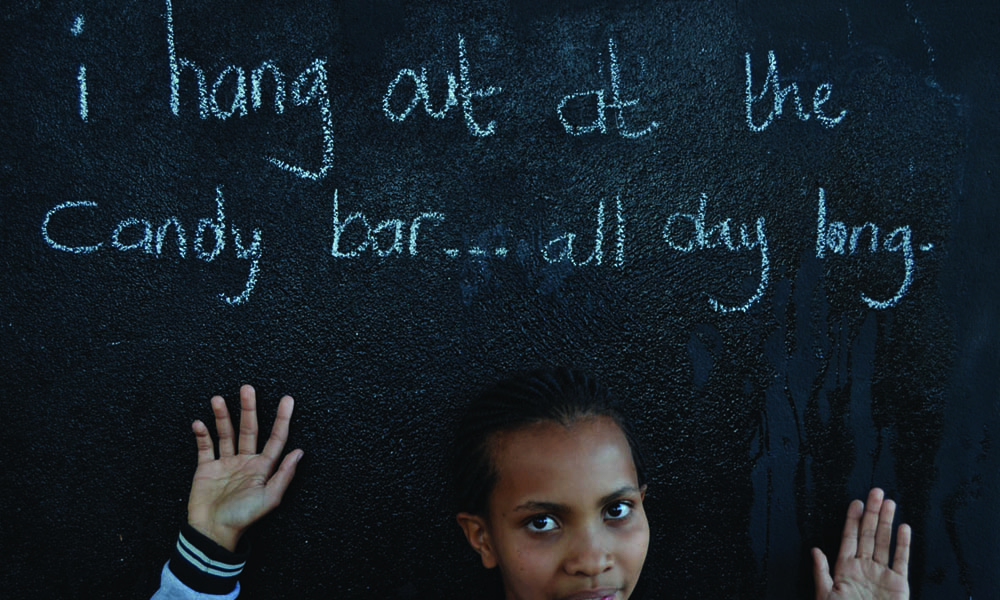 i hang out at the
candy bar... all day long.